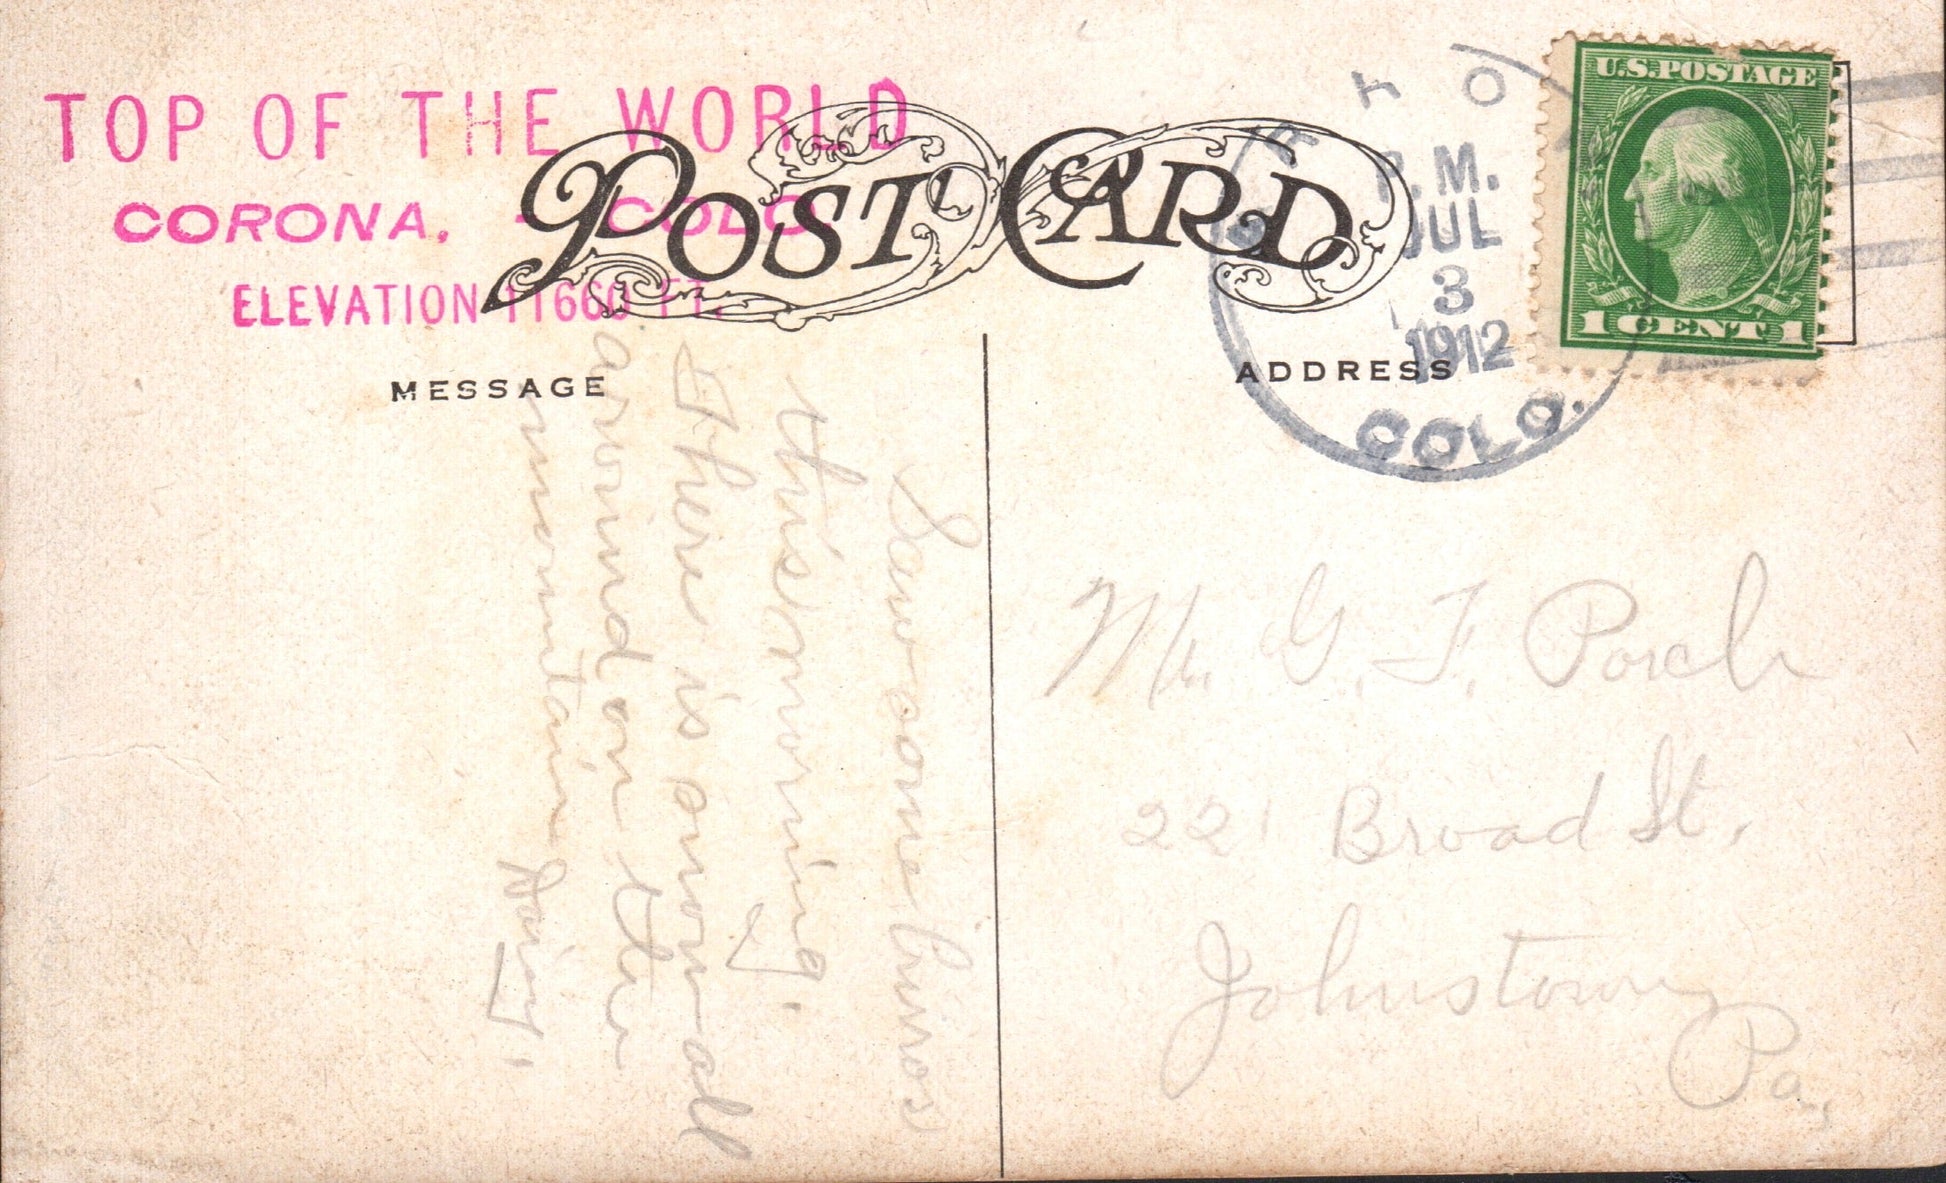 TOP OF THE WORLD
CORONA, - COLO.
ELEVATION 11660 FT.
POST CARD
MESSAGE
ADDRESS
P.M.
JUL
3
1912
COLO.
U.S.POSTAGE
1 CENT 1
Saw some
this morning.
There is snow all
around on the
mountain
Mr. G. F. Porch
221 Broad St.
Johnstown
Pa.